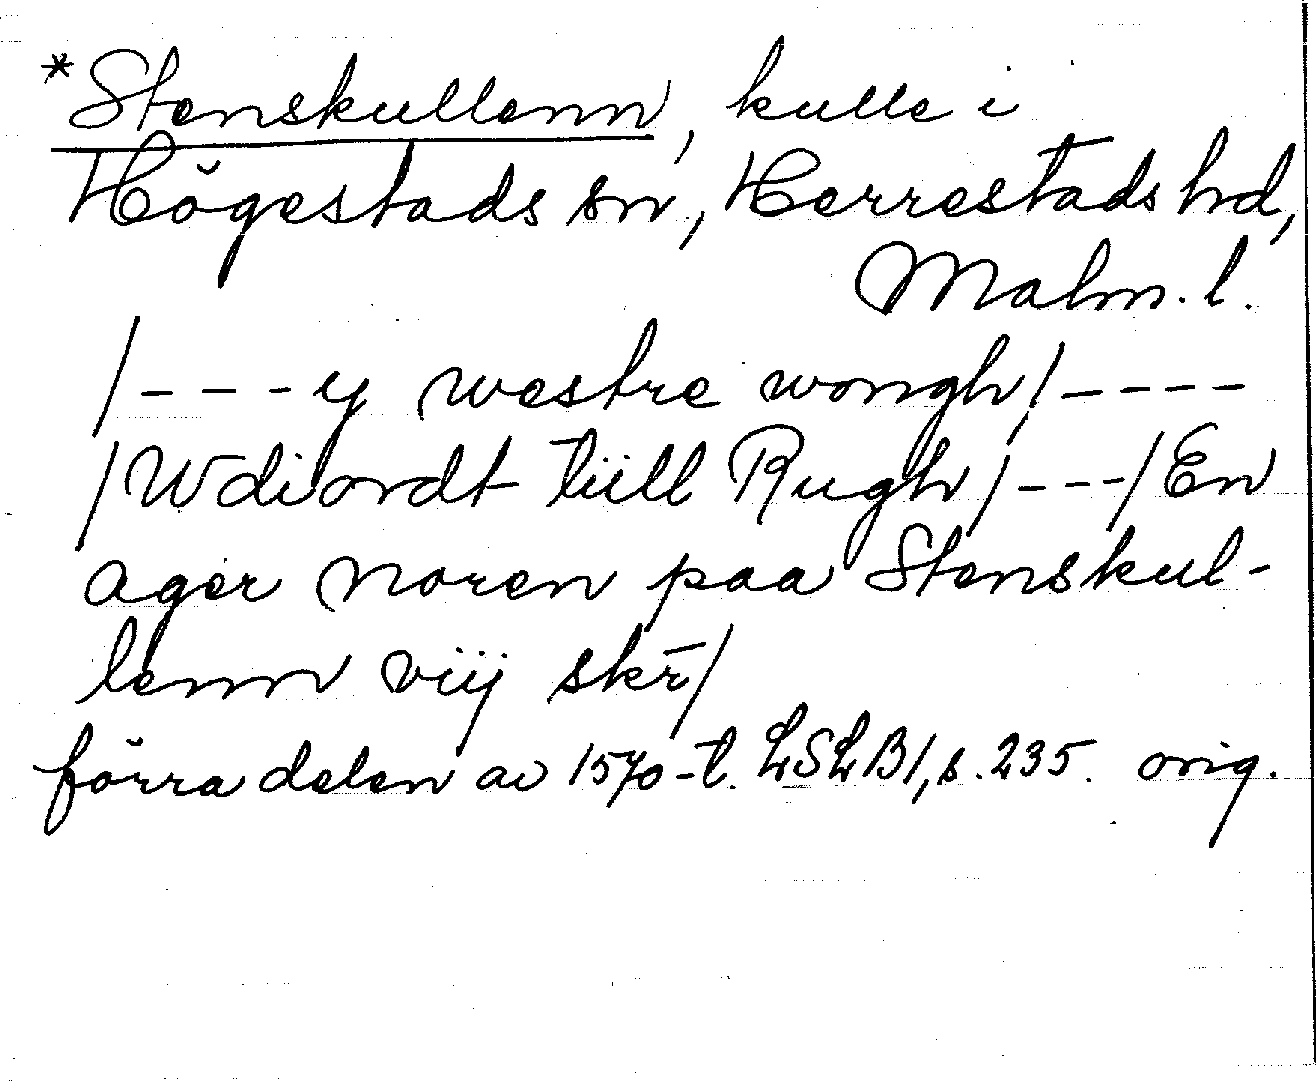 *Stenskullenn, kulle i
Högestads sn, Herrestads hd,
Malm. l.
/---y westre wongh/----
/Wdiordt tiill Rugh/---/En
ager noren paa Stenskul-
lenn viij skr̄/
förra delen av 1570-t. LSLB1, s. 235. orig.